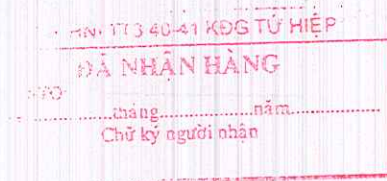 HN: TT3 40-41 KĐG TỨ HIỆP
ĐÃ NHẬN HÀNG
............tháng............năm............
Chữ ký người nhận